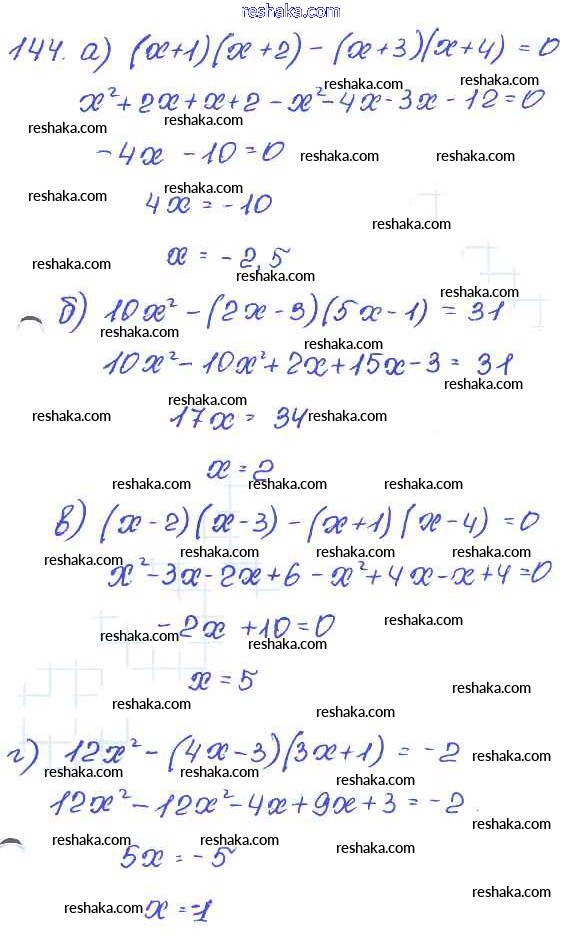 reshaka.com
144. а) (x+1)(x+2) - (x+3)(x+4) = 0
reshaka.com reshaka.com
x²+2x+x+2-x²-4x-3x-12=0
reshaka.com reshaka.com
-4x -10=0 reshaka.com reshaka.com
reshaka.com reshaka.com
4x = -10
reshaka.com
reshaka.com x = -2,5
reshaka.com
reshaka.com
б) 10x² - (2x-3)(5x-1) = 31
reshaka.com reshaka.com
10x²-10x²+2x+15x-3 = 31
reshaka.com
reshaka.com
reshaka.com 17x = 34 reshaka.com
x = 2
reshaka.com reshaka.com reshaka.com
в) (x-2)(x-3) - (x+1)(x-4) = 0
reshaka.com reshaka.com reshaka.com reshaka.com
x²-3x-2x+6-x²+4x-x+4=0
reshaka.com
-2x +10=0
reshaka.com reshaka.com
x = 5
reshaka.com
reshaka.com reshaka.com
г) 12x² - (4x-3)(3x+1) = -2 reshaka.com
reshaka.com reshaka.com reshaka.com
12x²-12x²-4x+9x+3 = -2
reshaka.com
reshaka.com reshaka.com reshaka.com
5x = -5
reshaka.com
reshaka.com x = -1